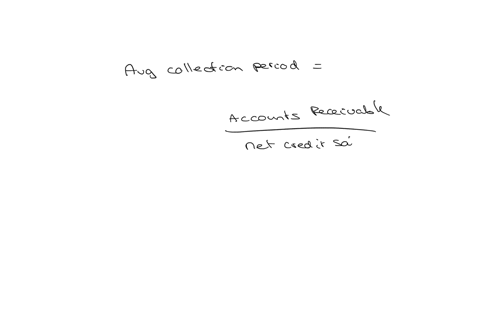 Avg collection period =
Accounts Receivable
net credit sa